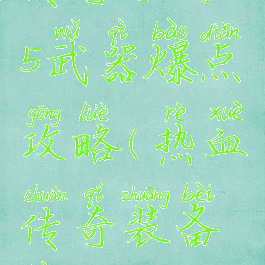 wǔ qì bào diǎn
5武器爆点
gōng lüè rè xuè
攻略(热血
chuán qí zhuāng bèi
传奇装备